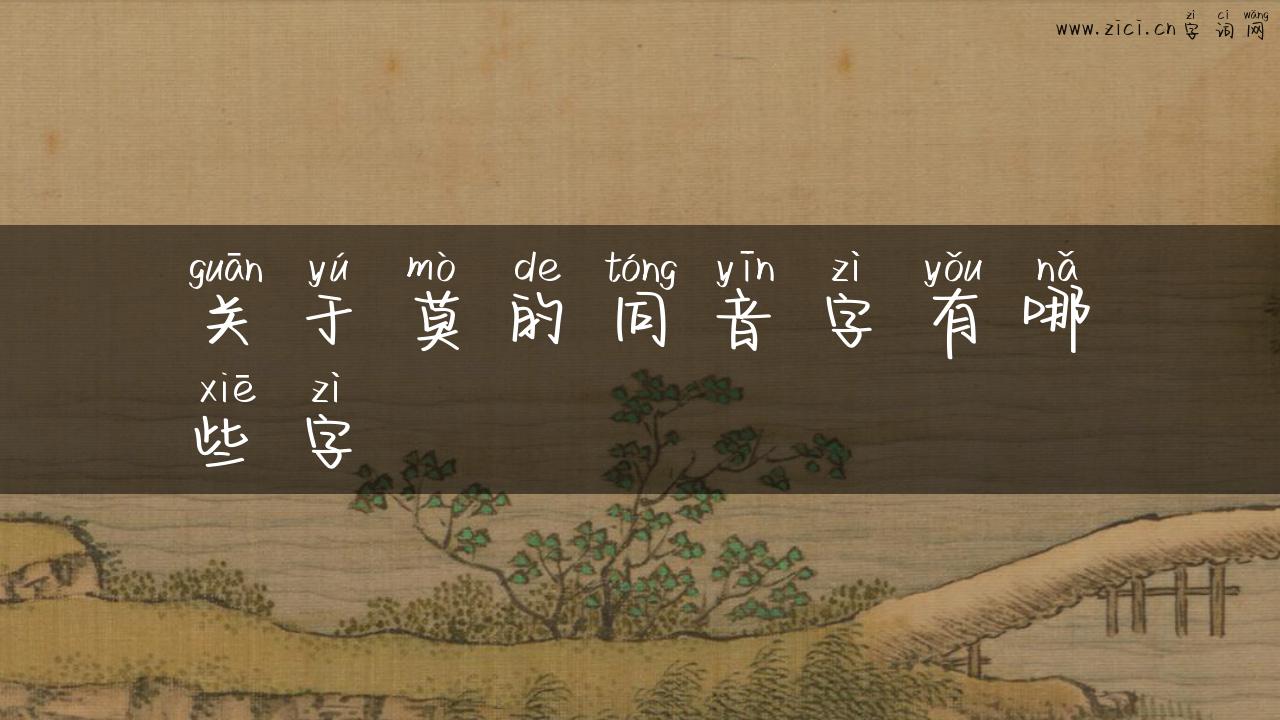 zì cí wǎng
www.zici.cn字词网
guān yú mò de tóng yīn zì yǒu nǎ
关于莫的同音字有哪
xiē zì
些字